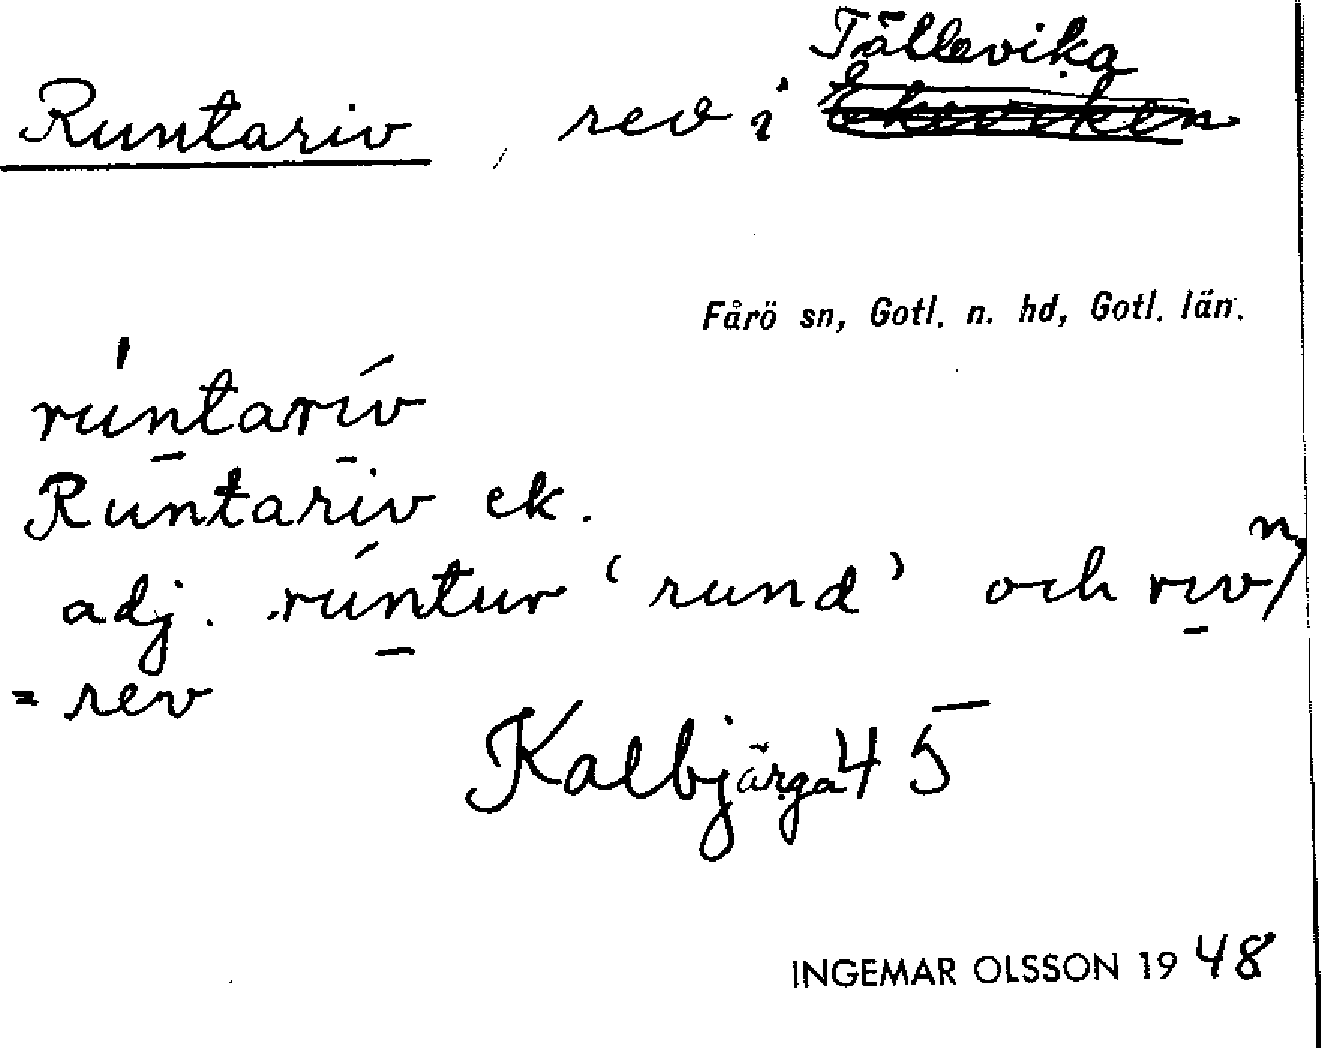 Tällevika
Runtariv, rev i Ekeviken
Fårö sn, Gotl. n. hd, Gotl. län.
rúntarív
Runtariv ek.
adj. rúntur ‘rund’ och rıv n,
= rev
Kalbjärga 45
INGEMAR OLSSON 1948